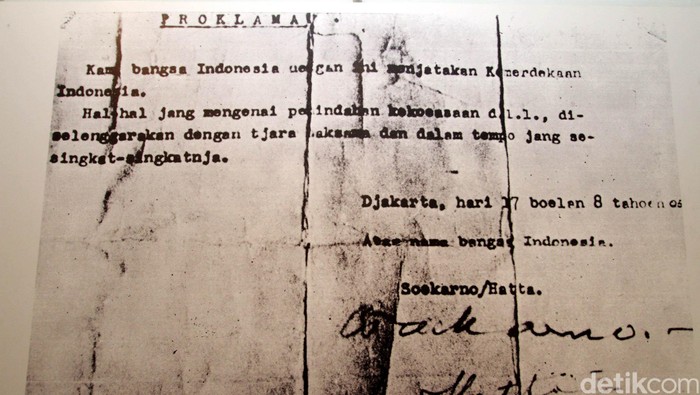 PROKLAMASI.
Kami bangsa Indonesia dengan ini menjatakan Kemerdekaan
Indonesia.
Hal-hal jang mengenai pemindahan kekoeasaan d.l.l., di-
selenggarakan dengan tjara saksama dan dalam tempo jang se-
singkat-singkatnja.
Djakarta, hari 17 boelan 8 tahoen 05
Atas nama bangsa Indonesia.
Soekarno/Hatta.
Soekarno.-
Hatta
detikcom